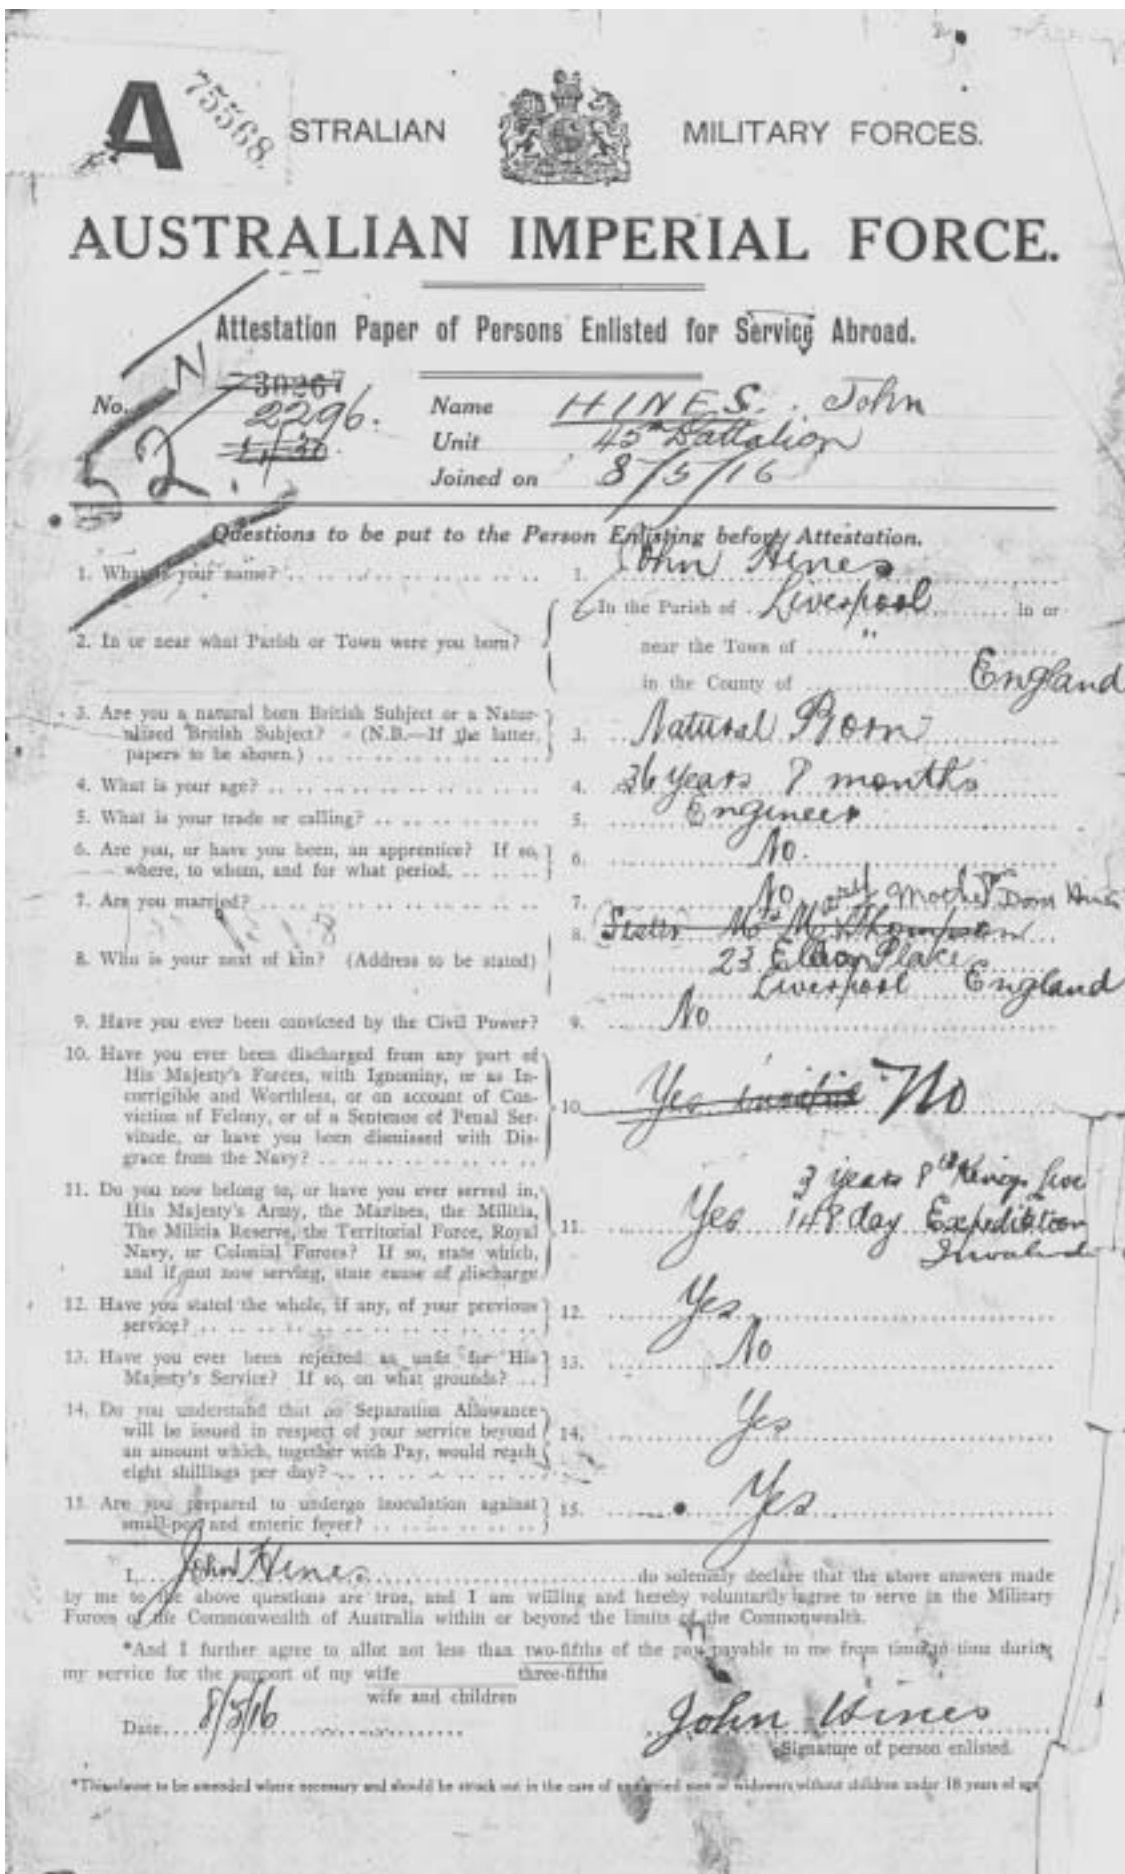 A 75568.
STRALIAN MILITARY FORCES.
AUSTRALIAN IMPERIAL FORCE.
Attestation Paper of Persons Enlisted for Service Abroad.
N
52.
No. 30267
2296.
Name HINES. John
Unit 45th Battalion
Joined on 8/5/16
Questions to be put to the Person Enlisting before Attestation.
1. What is your name? 1. John Hines
2. In or near what Parish or Town were you born? 2. In the Parish of Liverpool in or
near the Town of "
in the County of England
3. Are you a natural born British Subject or a Natur-
alized British Subject? (N.B.—If the latter,
papers to be shown.) 3. Natural Born
4. What is your age? 4. 36 years 8 months
5. What is your trade or calling? 5. Engineer
6. Are you, or have you been, an apprentice? If so,
where, to whom, and for what period. 6. No.
7. Are you married? 7. No
8. Who is your next of kin? (Address to be stated) 8. Sister Mrs M Thompson
Mother
23 Place
Liverpool England
9. Have you ever been convicted by the Civil Power? 9. No
10. Have you ever been discharged from any part of
His Majesty's Forces, with Ignominy, or as In-
corrigible and Worthless, or on account of Con-
viction of Felony, or of a Sentence of Penal Ser-
vitude, or have you been dismissed with Dis-
grace from the Navy? 10. Yes No
11. Do you now belong to, or have you ever served in,
His Majesty's Army, the Marines, the Militia,
The Militia Reserve, the Territorial Force, Royal
Navy, or Colonial Forces? If so, state which,
and if not now serving, state cause of discharge 11. Yes 3 years 8th Kings Live
148 day Expedition
Invalided
12. Have you stated the whole, if any, of your previous
service? 12. Yes
13. Have you ever been rejected as unfit for His
Majesty's Service? If so, on what grounds? 13. No
14. Do you understand that no Separation Allowance
will be issued in respect of your service beyond
an amount which, together with Pay, would reach
eight shillings per day? 14. Yes
15. Are you prepared to undergo inoculation against
small-pox and enteric fever? 15. Yes
I, John Hines do solemnly declare that the above answers made
by me to the above questions are true, and I am willing and hereby voluntarily agree to serve in the Military
Forces of the Commonwealth of Australia within or beyond the limits of the Commonwealth.
*And I further agree to allot not less than two-fifths of the pay payable to me from time to time during
three-fifths
my service for the support of my wife
wife and children
Date 8/5/16 John Hines
Signature of person enlisted.
*This clause to be amended where necessary and should be struck out in the case of unmarried men or widowers without children under 18 years of age